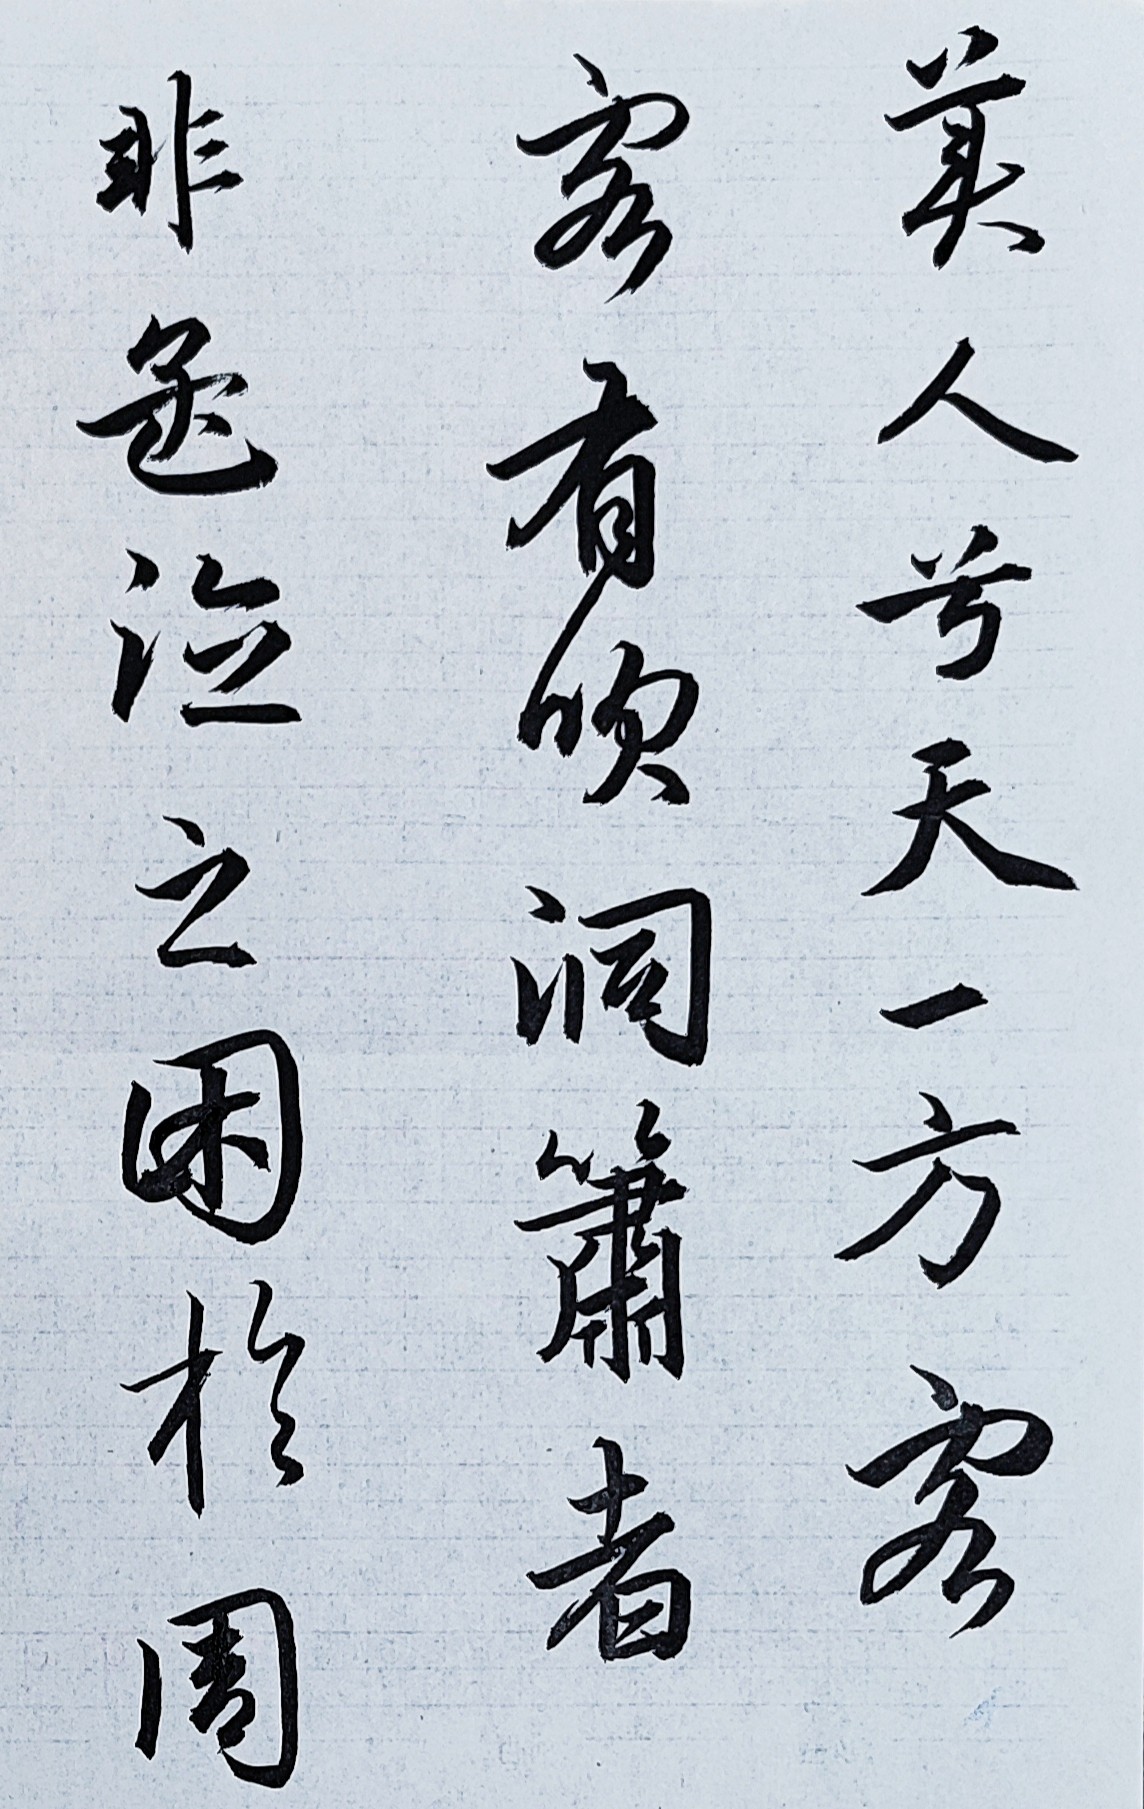 美人兮天一方客
客有吹洞簫者
非孟德之困於周